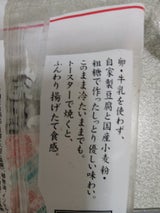 卵・牛乳を使わず、
自家製豆腐と国産小麦粉・
粗糖で作ったしっとり優しい味わい。
このまま冷たいままでも、
トースターで焼くと、
ふんわり揚げたて食感。